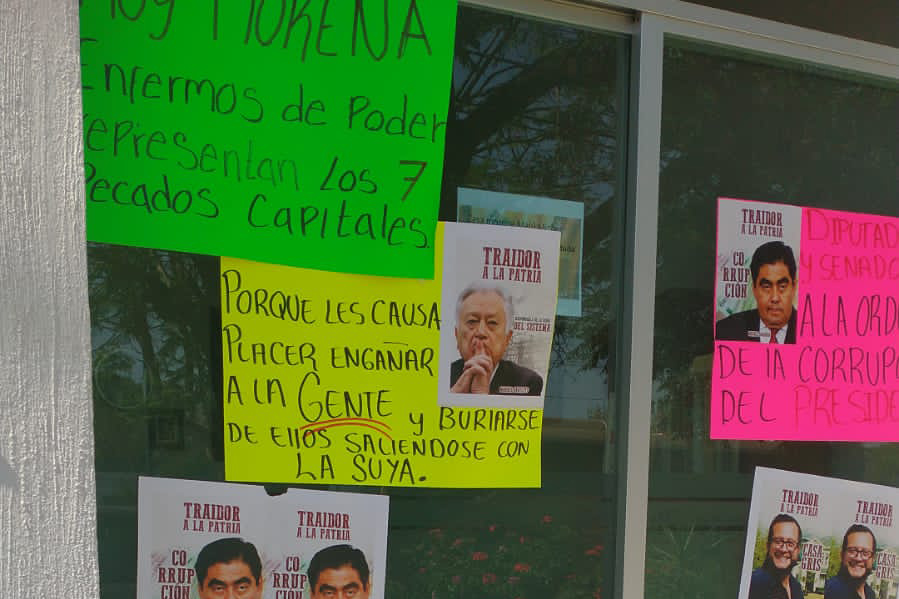 HOY MORENA
Enfermos de Poder
representan los 7
Pecados Capitales.
PORQUE LES CAUSA
PLACER ENGAÑAR
A LA GENTE
y BURlARSE
DE EllOS SALIENDOSE CON
LA SUYA.
TRAIDOR
A LA PATRIA
DEL SISTEMA
TRAIDOR
A LA PATRIA
CO
RRUP
CIÓN
DIPUTAD
Y SENADO
A LA ORD
DE lA CORRUPC
DEL PRESIDE
TRAIDOR
A LA PATRIA
CO
RRUP
CIÓN
TRAIDOR
A LA PATRIA
CO
RRUP
CIÓN
TRAIDOR
A LA PATRIA
CASA
GRIS
TRAIDOR
A LA PATRIA
CASA
GRIS